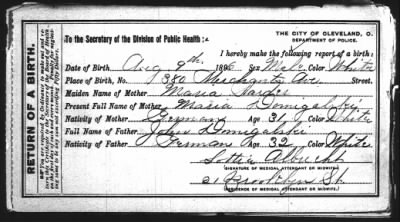 THE CITY OF CLEVELAND, O.
DEPARTMENT OF POLICE.
To the Secretary of the Division of Public Health:
I hereby make the following report of a birth:
Date of Birth Aug 9th 1896 Sex Male Color White
Place of Birth, No. 1380 Merchants Ave. Street.
Maiden Name of Mother Maria
Present Full Name of Mother Maria Domigalski
Nativity of Mother Germany Age 31 Color White
Full Name of Father John Domigalski
Nativity of Father German Age 32 Color White
Lottie Albrecht
(SIGNATURE OF MEDICAL ATTENDANT OR MIDWIFE.)
21 Brooklyn St.
(RESIDENCE OF MEDICAL ATTENDANT OR MIDWIFE.)
RETURN OF A BIRTH.